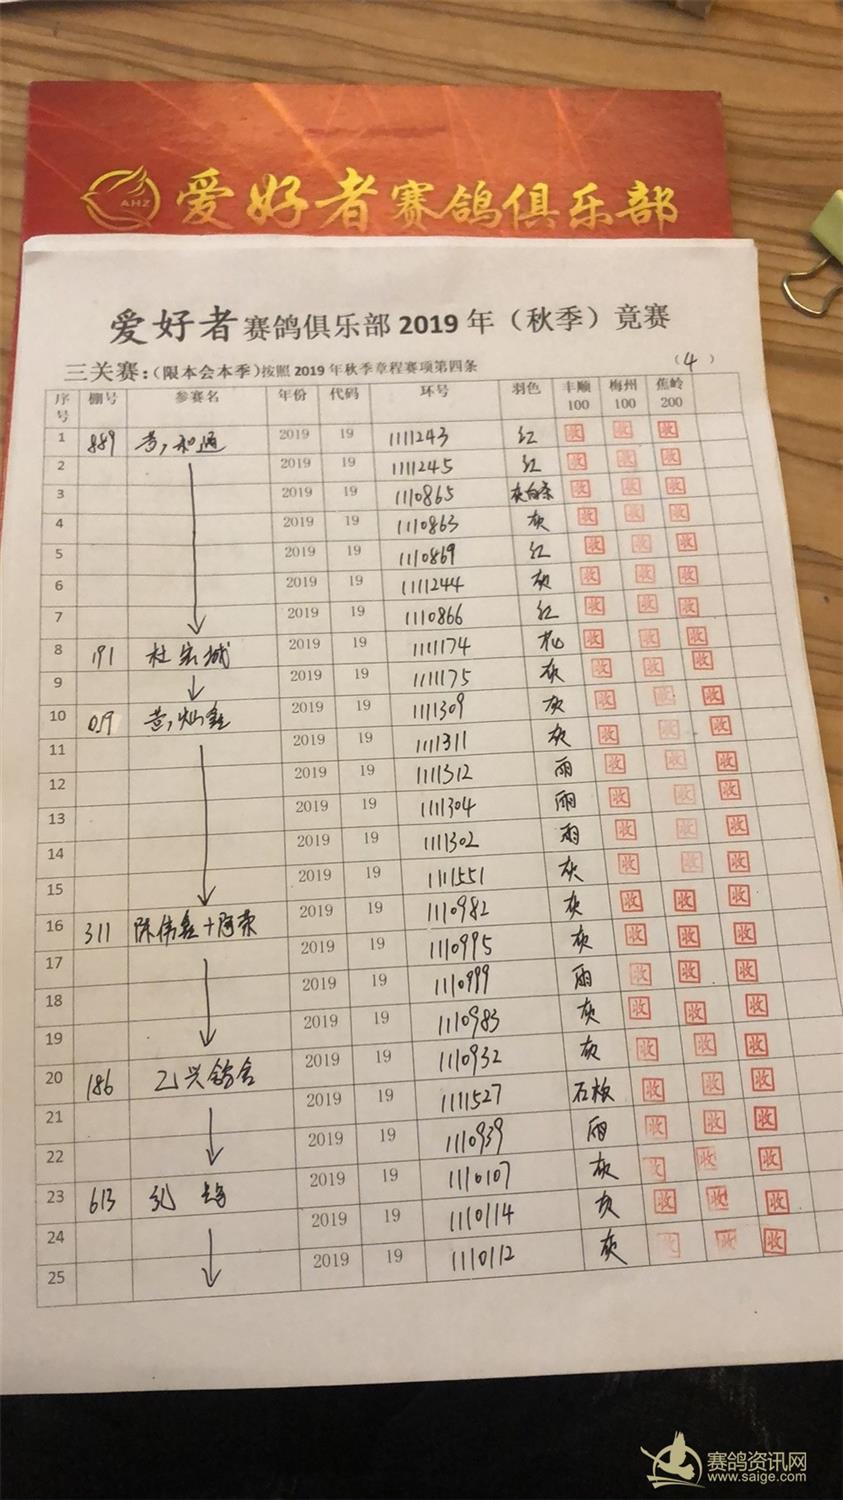 AHZ
爱好者赛鸽俱乐部
爱好者赛鸽俱乐部 2019 年（秋季）竟赛
三关赛：（限本会本季）按照 2019 年秋季章程赛项第四条 （4）
序号 棚号 参赛名 年份 代码 环号 羽色 丰顺100 梅州100 蕉岭200
1 889 黄,和通 2019 19 1111243 红 收 收 收
2 2019 19 1111245 红 收 收 收
3 2019 19 1110865 灰白条 收 收 收
4 2019 19 1110863 灰 收 收 收
5 2019 19 1110869 红 收 收 收
6 2019 19 1111244 灰 收 收 收
7 2019 19 1110866 红 收 收 收
8 191 杜宏城 2019 19 1111174 花 收 收 收
9 2019 19 1111175 灰 收 收 收
10 019 黄,灿鑫 2019 19 1111309 灰 收 收 收
11 2019 19 1111311 灰 收 收 收
12 2019 19 1111312 雨 收 收 收
13 2019 19 1111304 雨 收 收 收
14 2019 19 1111302 雨 收 收 收
15 2019 19 1111551 灰 收 收 收
16 311 陈伟鑫+阿荣 2019 19 1110982 灰 收 收 收
17 2019 19 1110995 灰 收 收 收
18 2019 19 1110999 雨 收 收 收
19 2019 19 1110983 灰 收 收 收
20 186 乙兴鸽舍 2019 19 1110932 灰 收 收 收
21 2019 19 1111527 石板 收 收 收
22 2019 19 1110939 雨 收 收 收
23 613 纪 2019 19 1110107 灰 收 收 收
24 2019 19 1110114 灰 收 收 收
25 2019 19 1110112 灰 收 收 收
赛鸽资讯网
www.saige.com